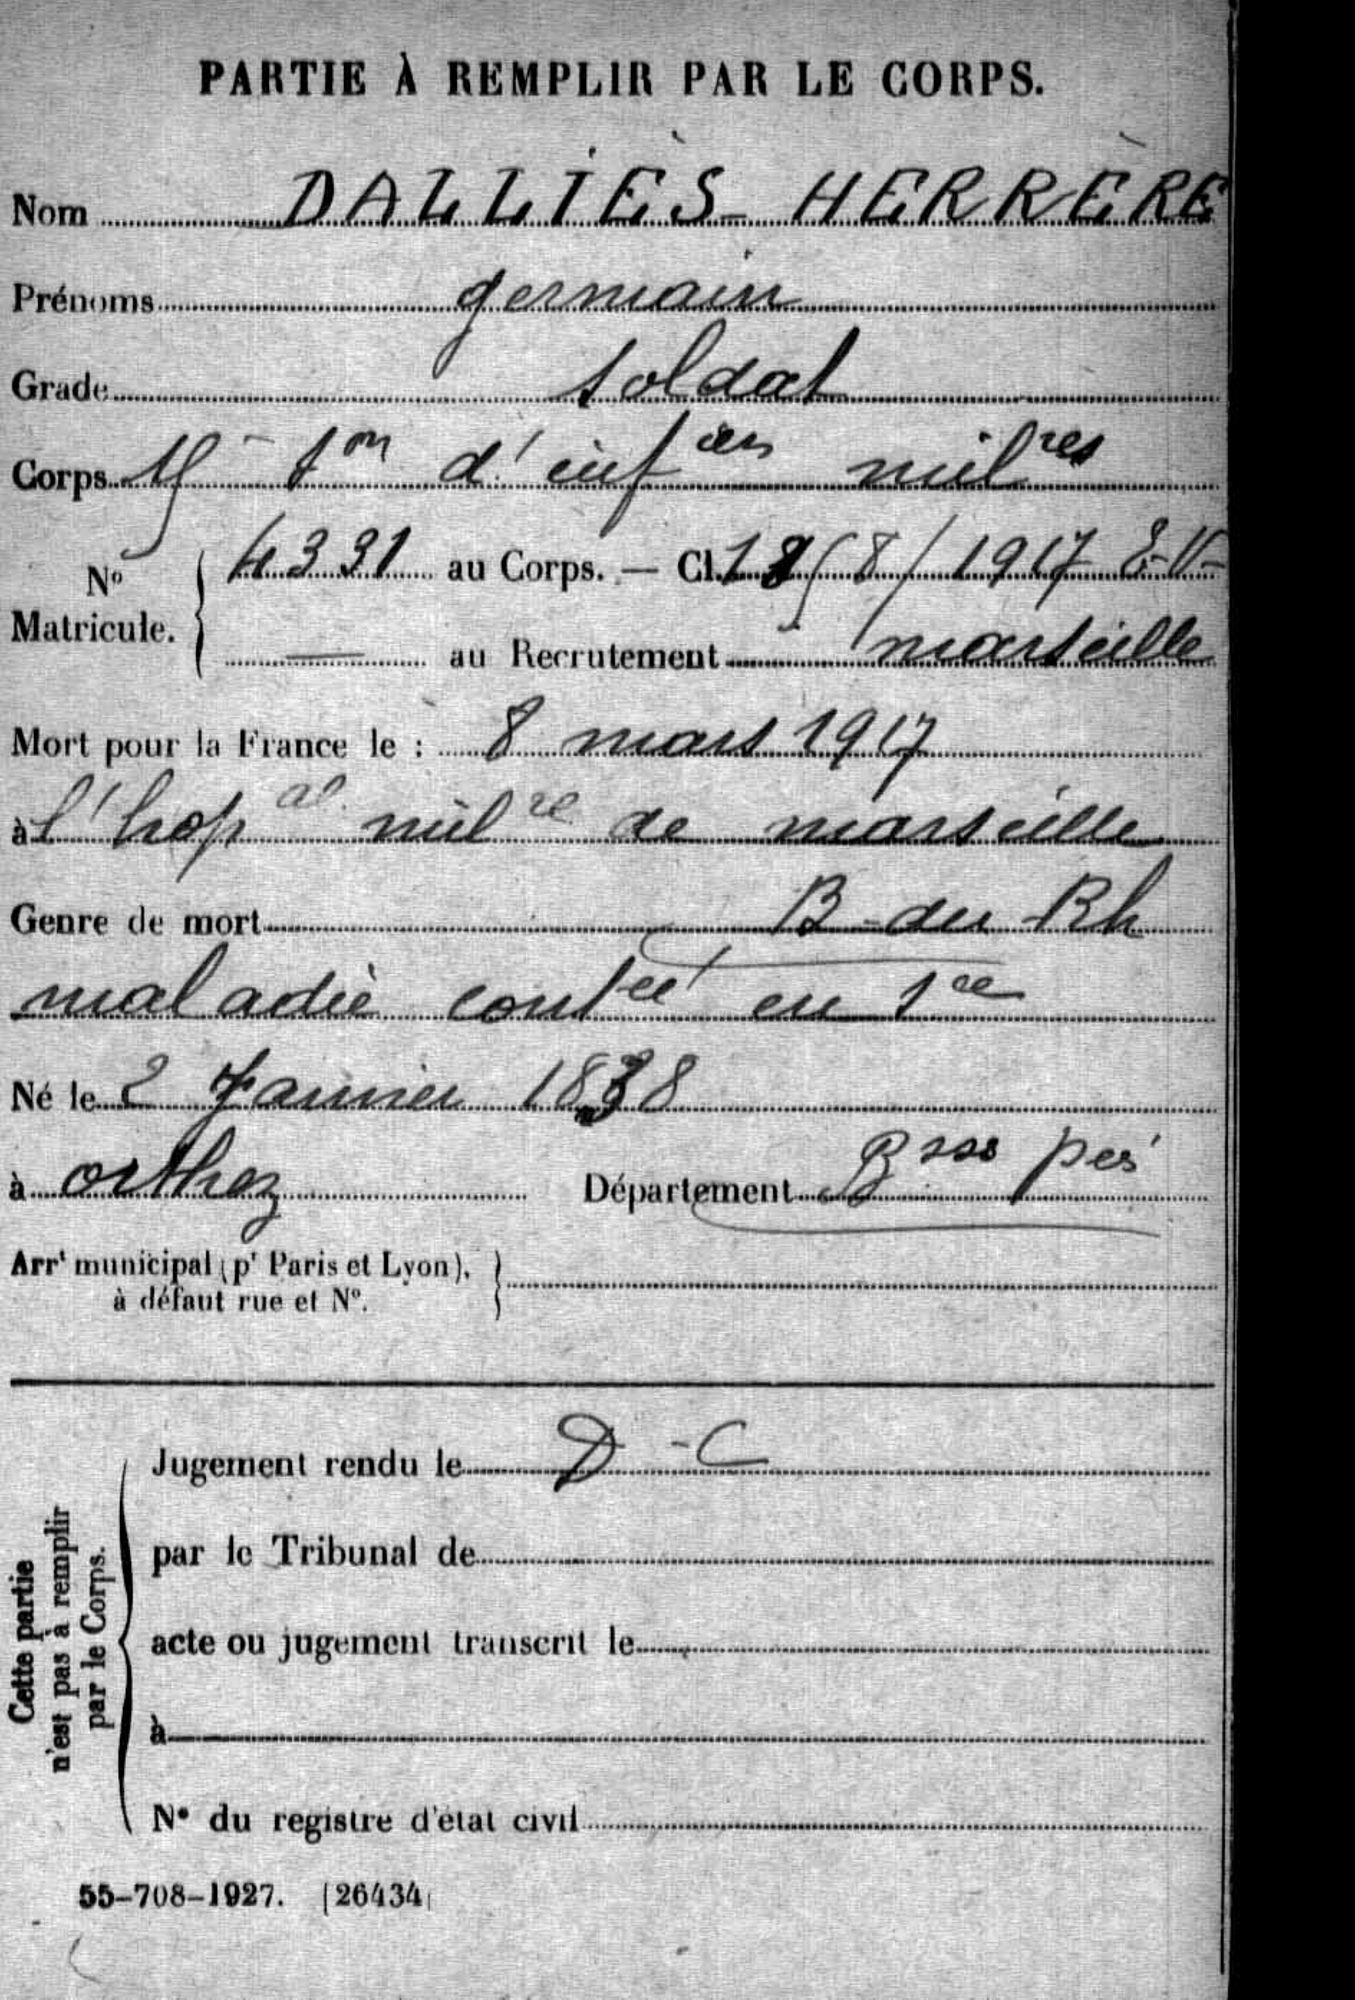 PARTIE À REMPLIR PAR LE CORPS.
Nom DALLIÈS-HERRÈRE
Prénoms germain
Grade soldat
Corps son d'infers milres
No Matricule. 4331 au Corps. — Cl. 18/8/1917 E-V-
— au Recrutement marseille
Mort pour la France le : 8 mars 1917
à l'hopal milre de marseille
B-du-Rh
Genre de mort
maladie contée en sce
Né le 2 Janvier 1838
à orthez Département Bsses pes
Arrt municipal (pr Paris et Lyon), à défaut rue et No.
Cette partie n'est pas à remplir par le Corps.
Jugement rendu le D-C
par le Tribunal de
acte ou jugement transcrit le
à
No du registre d'état civil
55-708-1927. [26434]